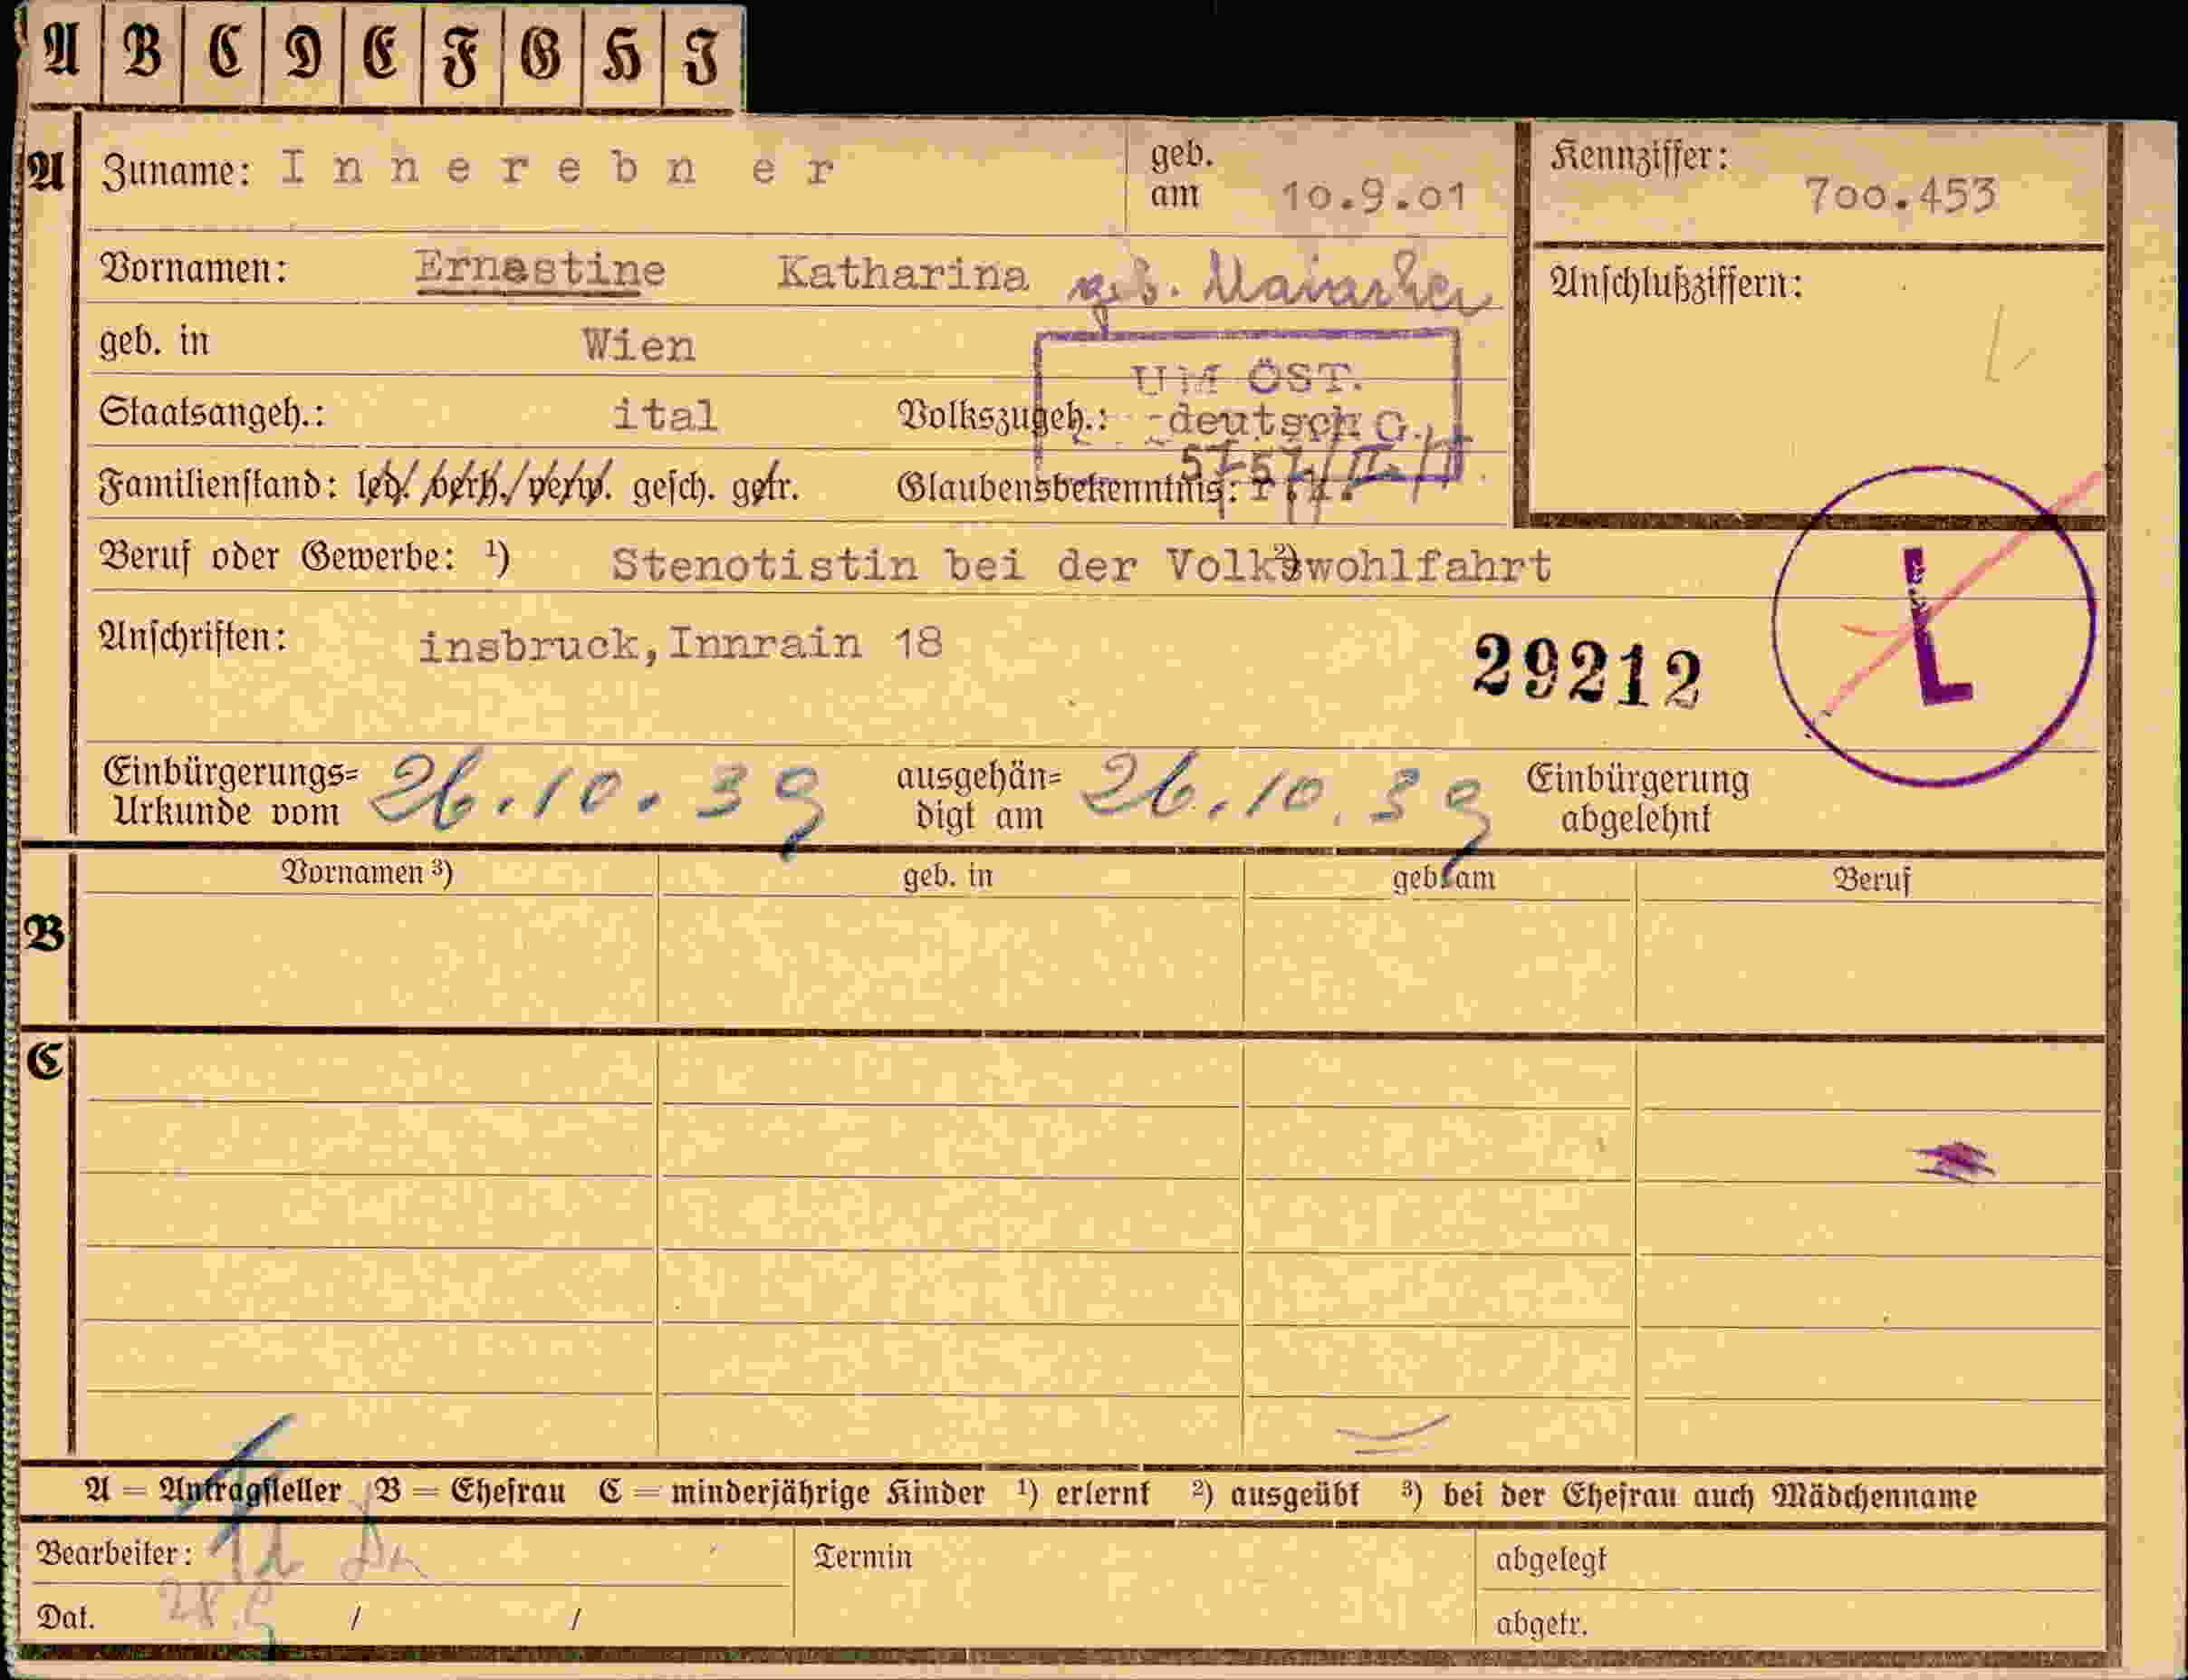 A B C D E F G H I
A Zuname: Innerebner geb. am 10.9.01 Kennziffer: 700.453
Vornamen: Ernestine Katharina geb. Anschlußziffern:
geb. in Wien
UM ÖST.
Staatsangeh.: ital Volkszugeh.: -deutsch
Familienstand: led. verh. verw. gesch. getr. Glaubensbekenntnis: r.k.
Beruf oder Gewerbe: ¹) Stenotistin bei der Volkswohlfahrt ²)
L
Anschriften: insbruck, Innrain 18
29212
Einbürgerungs= Urkunde vom 26.10.39 ausgehän= digt am 26.10.39 Einbürgerung abgelehnt
Vornamen ³) geb. in geb. am Beruf
B
C
A = Antragsteller B = Ehefrau C = minderjährige Kinder ¹) erlernt ²) ausgeübt ³) bei der Ehefrau auch Mädchenname
Bearbeiter: Termin abgelegt
Dat. 28.9 / / abgetr.